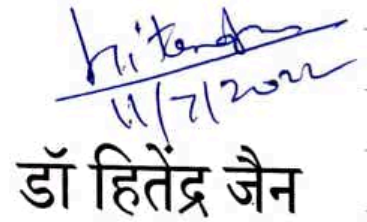 hitendra
11/7/2022
डॉ हितेंद्र जैन